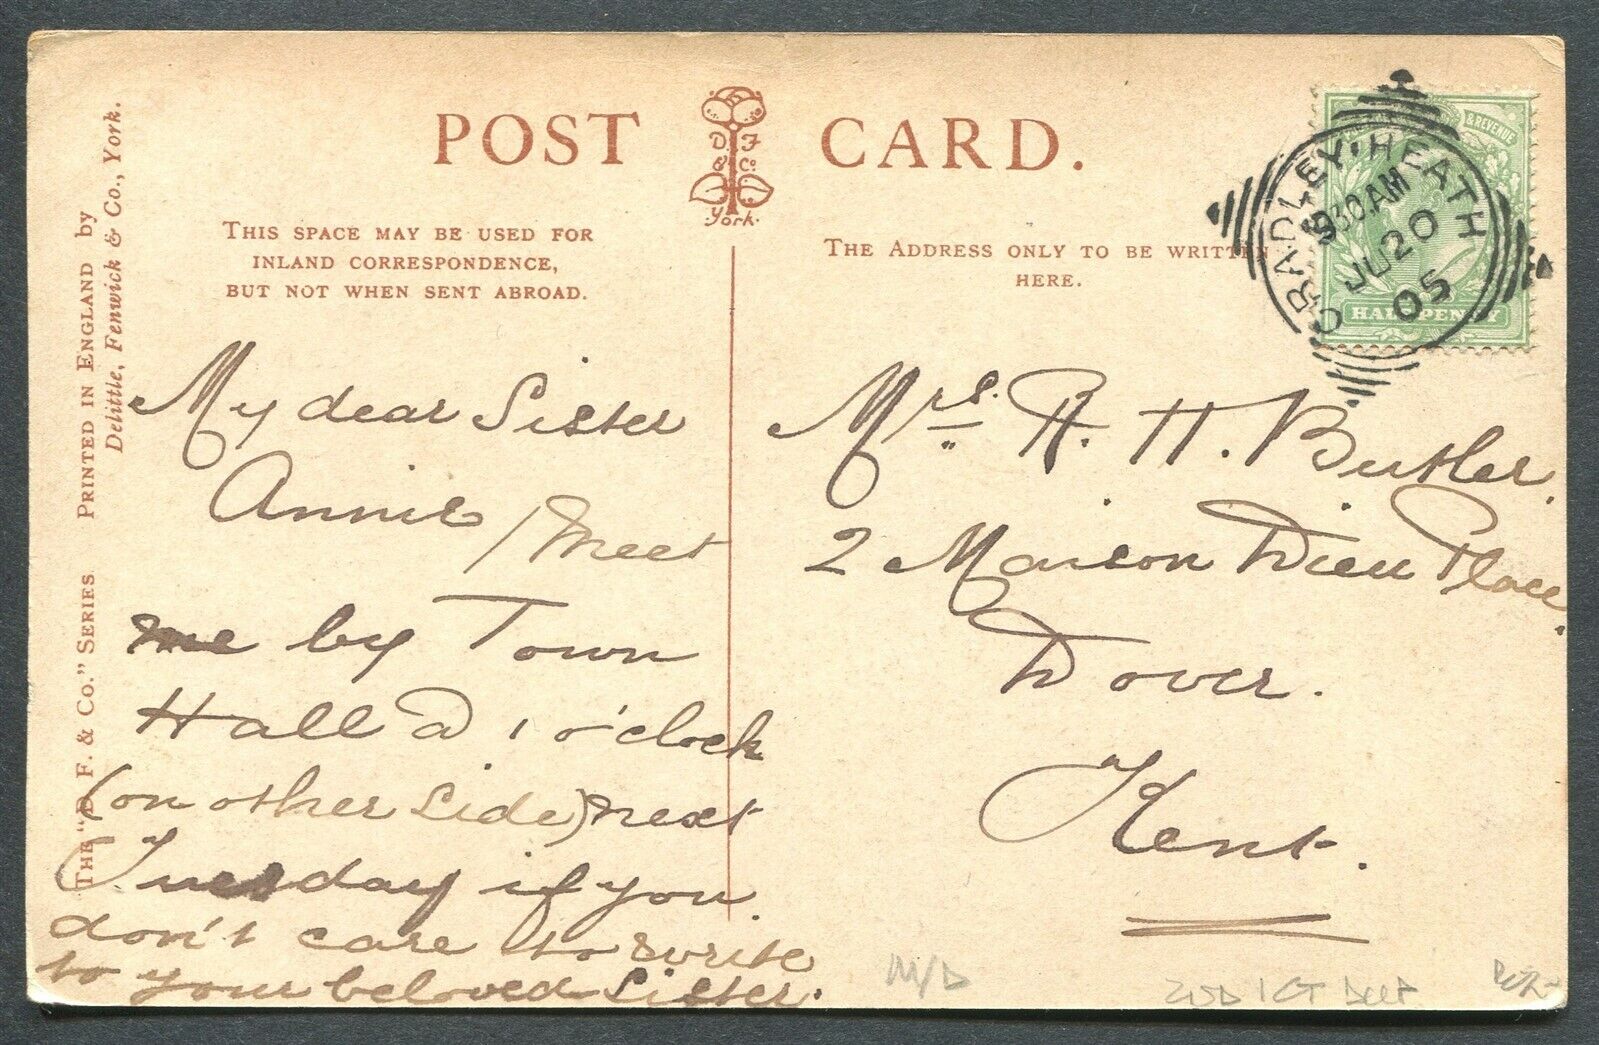 POST CARD.
D. F
& Co.
York.
THIS SPACE MAY BE USED FOR
INLAND CORRESPONDENCE,
BUT NOT WHEN SENT ABROAD.
THE ADDRESS ONLY TO BE WRITTEN
HERE.
THE "D. F. & CO." SERIES PRINTED IN ENGLAND by
Delittle, Fenwick & Co., York.
& REVENUE
HALFPENNY
CRADLEY·HEATH
930.AM
JU 20
05
My dear Sister
Annie / meet
me by Town
Hall a 1 o'clock
(on other side) next
Tuesday if you
don't care to write
to your beloved Sister.
Mrs. A. H. Butler,
2 Maison Dieu Place.
Dover.
Kent.
M/D